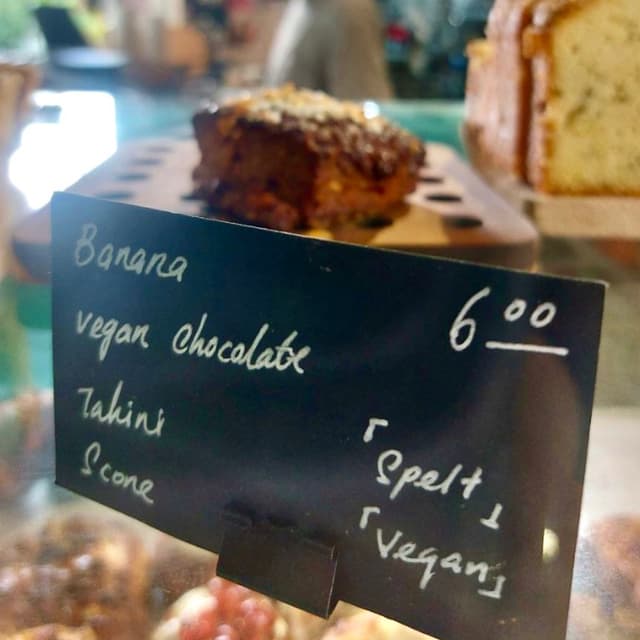 Banana
6 00
vegan chocolate
Tahini
Scone
「Spelt」
「Vegan」